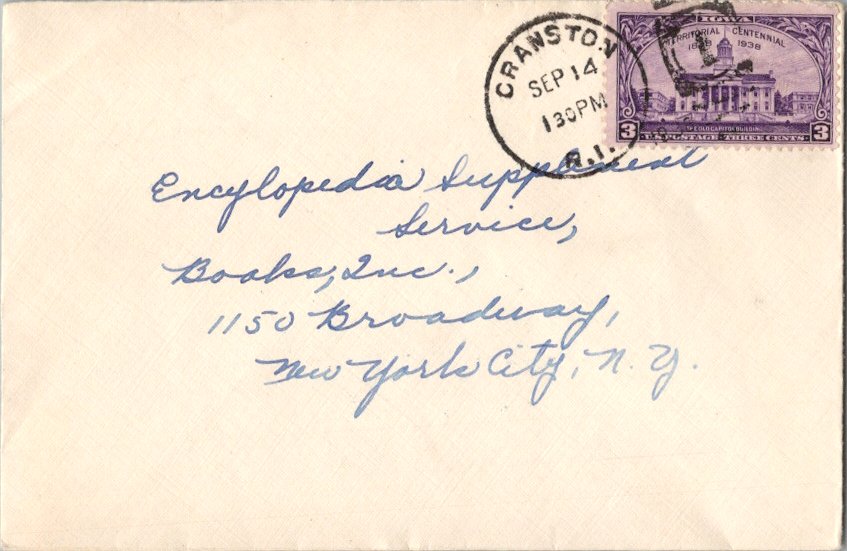 CRANSTON
SEP 14
130PM
R.I.
IOWA
TERRITORIAL CENTENNIAL
1838 1938
OLD CAPITOL BUILDING
3 U.S. POSTAGE · THREE CENTS 3
Encylopedia Supplement
Service,
Books, Inc.,
1150 Broadway,
New York City, N. Y.